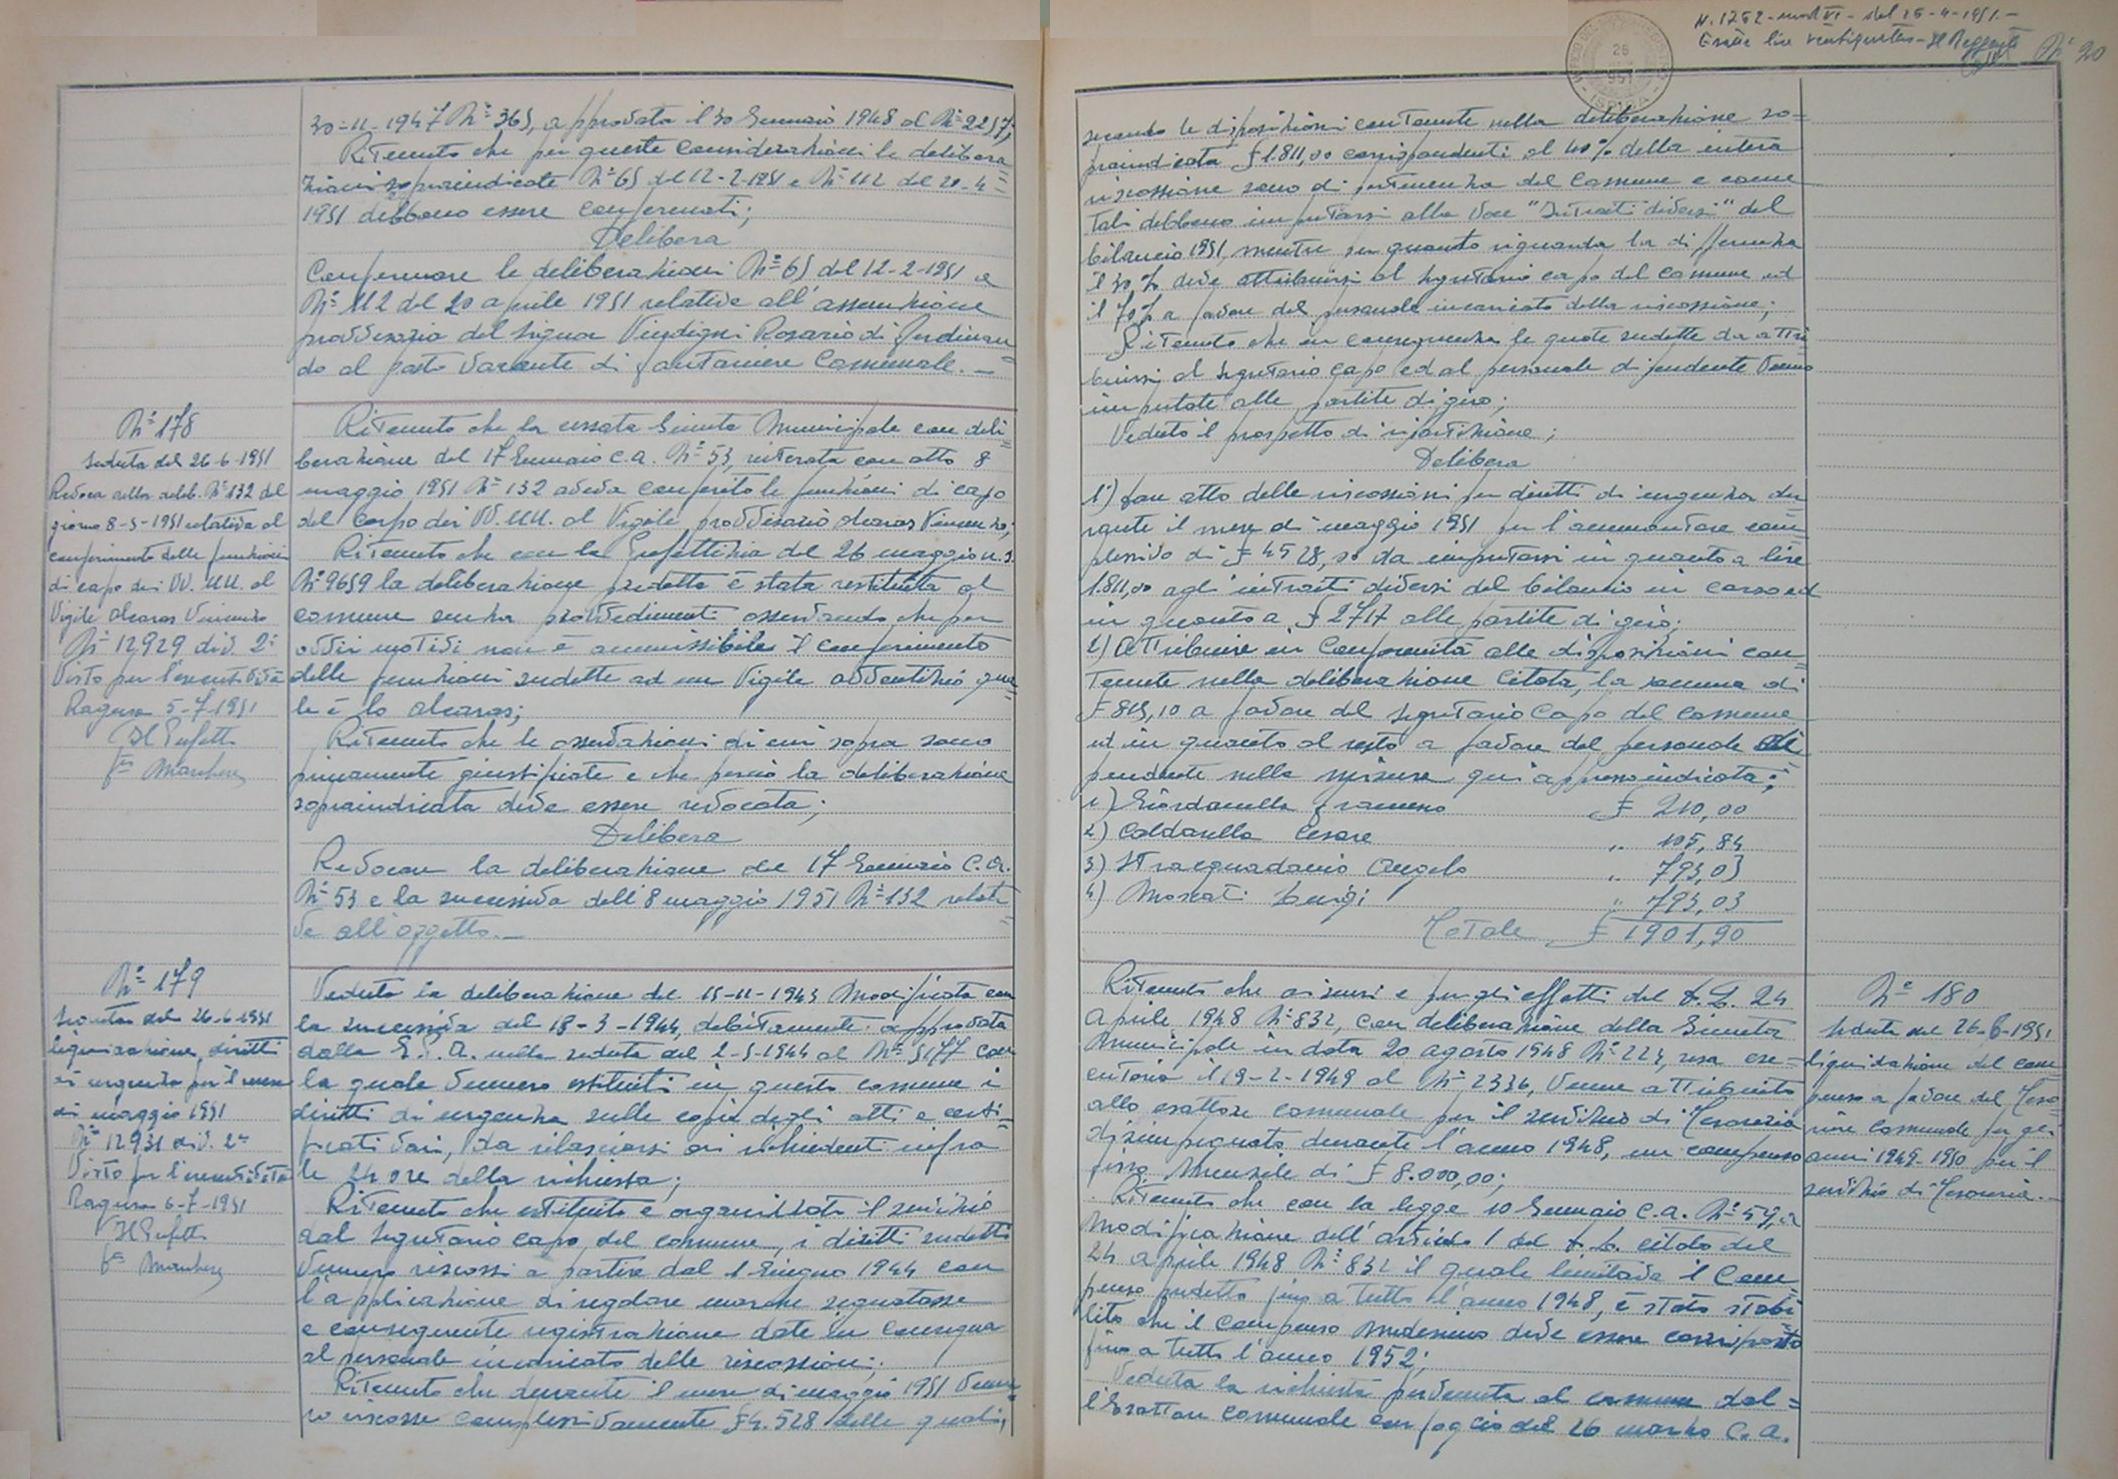 N. 1252 - mod VI - del 26-4-1951.-
Esatte lire
N° 20
UFFICIO DEL REGISTRO
26
951
ISPICA
30-11-1947 N° 365, approvata il 30 Gennaio 1948 al N° 2257;
Ritenuto che per queste considerazioni le delibera=
zioni sopraindicate N° 65 del 12-2-1951 e N° 112 del 20-4=
1951 debbono essere confermati;
Delibera
Confermare le deliberazioni N° 65 del 12-2-1951 e
N° 112 del 20 aprile 1951 relative all'assunzione
provvisoria del signor Vindigni Rosario di Ferdinan=
do al posto vacante di fontaniere Comunale. -
N° 178
Seduta del 26-6-1951
Revoca della delib. N° 132 del
giorno 8-5-1951 relativa al
conferimento delle funzioni
di capo dei VV. UU. al
Vigile Vincenzo
N° 12929 div. 2ª
Visto per l'esecutività
Ragusa 5-7-1951
Il Prefetto
Ritenuto che la cessata Giunta Municipale con deli=
berazione del 17 Gennaio c.a. N° 53, reiterata con atto 8
maggio 1951 N° 132 aveva conferito le funzioni di capo
del corpo dei VV. UU. al Vigile provvisorio Vincenzo;
Ritenuto che con la Prefettizia del 26 maggio u.s.
N° 9659 la deliberazione predetta è stata restituita al
comune senza provvedimenti osservando che per
ovvii motivi non è ammissibile il conferimento
delle funzioni sudette ad un Vigile avventizio qua=
le è lo
Ritenuto che le osservazioni di cui sopra sono
pienamente giustificate e che perciò la deliberazione
sopraindicata deve essere revocata;
Delibera
Revocare la deliberazione del 17 Gennaio c.a.
N° 53 e la successiva dell'8 maggio 1951 N° 132 relati=
ve all'oggetto.-
N° 179
Seduta del 26-6-1951
liquidazione diritti
di urgenza per il mese
di maggio 1951
N° 12931 div. 2ª
Visto per l'esecutività
Ragusa 6-7-1951
Il Prefetto
Veduta la deliberazione del 15-11-1943 modificata con
la successiva del 18-3-1944, debitamente approvata
dalla G.P.A. nella seduta del 2-5-1944 al N° 5177 con
la quale vennero istituiti in questo comune i
diritti di urgenza sulle copie degli atti e certi=
ficati vari, da rilasciarsi ai richiedenti infra
le 24 ore della richiesta;
Ritenuto che istituito e organizzato il servizio
dal segretario capo del comune, i diritti sudetti
vennero riscossi a partire dal 1 Giugno 1944 con
l'applicazione di regolare marche segnatasse
e conseguente registrazione date in consegna
al personale incaricato delle riscossioni;
Ritenuto che durante il mese di maggio 1951 venne=
ro riscosse complessivamente £ 4.528 delle quali,
secondo le disposizioni contenute nella deliberazione so=
praindicata £ 1.811,00 corrispondenti al 40% della intera
riscossione sono di pertinenza del comune e come
tali debbono imputarsi alla voce "Introiti diversi" del
bilancio 1951 mentre per quanto riguarda la differenza
il 30% deve attribuirsi al segretario capo del comune ed
il 70% a favore del personale incaricato della riscossione;
Ritenuto che in conseguenza le quote sudette da attri=
buirsi al segretario capo ed al personale dipendente vanno
imputate alle partite di giro;
Veduto il prospetto di ripartizione;
Delibera
1°) fare atto delle riscossioni per diritti di urgenza du=
rante il mese di maggio 1951 per l'ammontare com=
plessivo di £ 4528,00 da imputarsi in quanto a lire
1.811,00 agli introiti diversi del bilancio in corso ed
in quanto a £ 2717 alle partite di giro;
2) Attribuire in conformità alle disposizioni con=
tenute nella deliberazione citata, la somma di
£ 815,10 a favore del segretario capo del comune
ed in quanto al resto a favore del personale di=
pendente nelle misure qui appresso indicata:
1) Giordanella Francesco £ 210,00
2) Caldarella Cesare " 105,84
3) Stracquadanio Angelo " 793,03
4) Moscati Luigi " 793,03
Totale £ 1901,90
Ritenuto che ai sensi e per gli effetti del D.L. 24
aprile 1948 N° 832, con deliberazione della Giunta
Municipale in data 20 agosto 1948 N° 223, resa ese=
cutoria il 19-2-1949 al N° 2336, venne attribuito
allo esattore comunale per il servizio di Tesoreria
disimpegnato durante l'anno 1948, un compenso
fisso mensile di £ 8.000,00;
Ritenuto che con la legge 10 Gennaio c.a. N° 59, a
modificazione dell'articolo 1 del D.L. citato del
24 aprile 1948 N° 832 il quale limitava il com=
penso predetto fino a tutto l'anno 1948, è stato stabi=
lito che il compenso medesimo deve essere corrisposto
fino a tutto l'anno 1952;
Veduta la richiesta pervenuta al comune dal=
l'Esattore comunale con foglio del 26 marzo c.a.
N° 180
Seduta del 26-6-1951
liquidazione del com=
penso a favore del Teso=
riere comunale per gli
anni 1949-1950 per il
servizio di Tesoreria.-